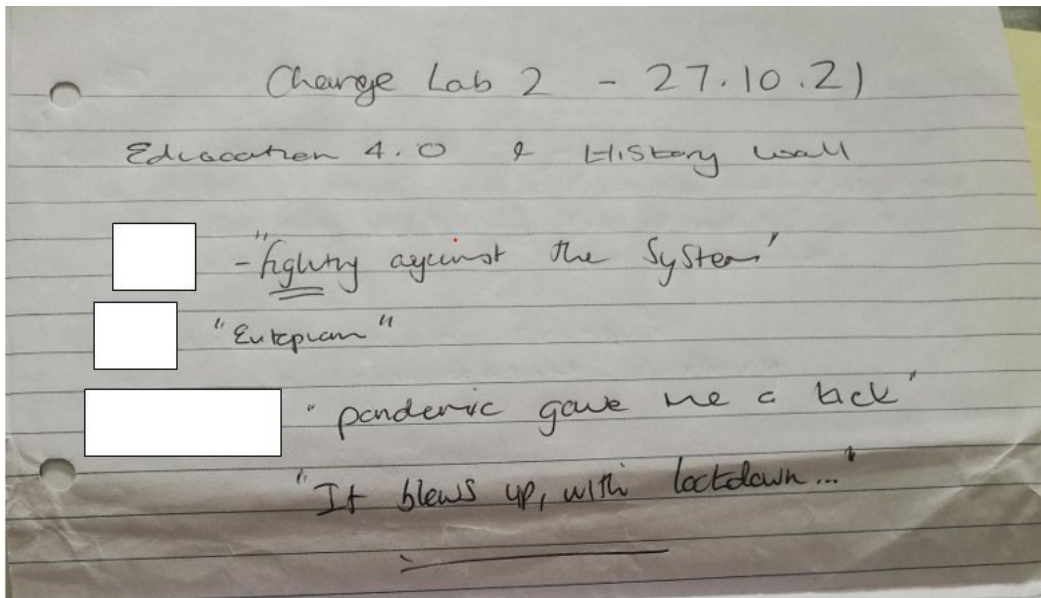 Change Lab 2 - 27.10.21
Education 4.0 & History wall
- "fighting against the System"
"Eutopian"
"pandemic gave me a kick"
"It blows up, with lockdown..."